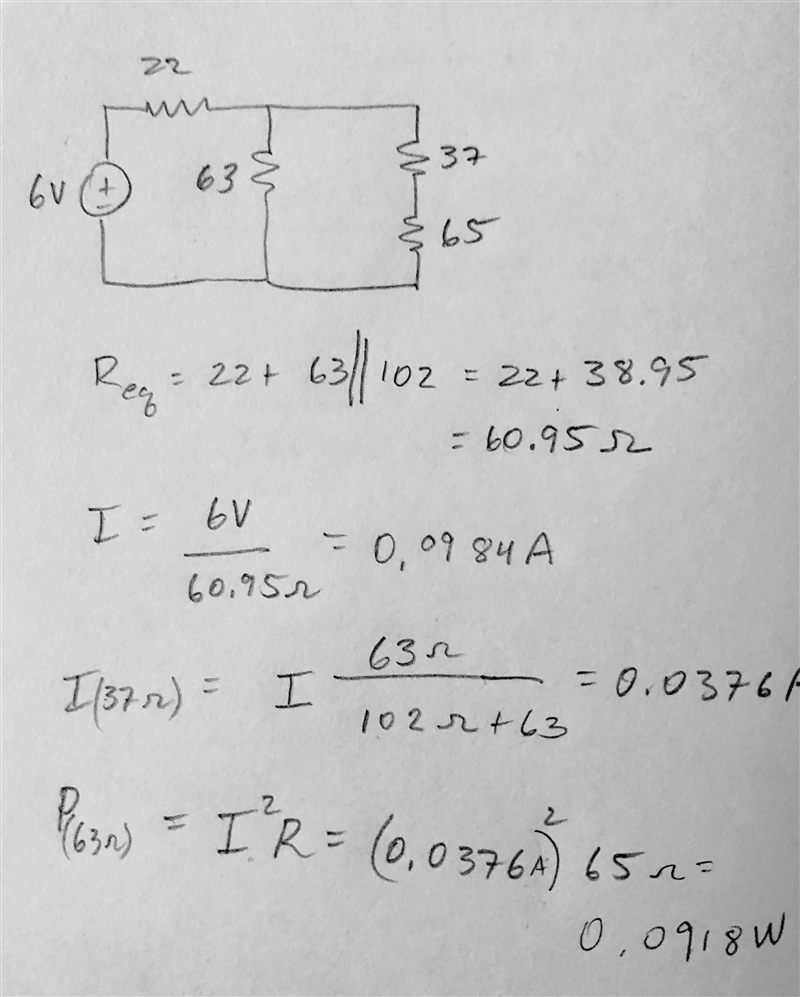 22
6V
+
-
63
37
65
Req = 22 + 63 || 102 = 22 + 38.95
= 60.95 Ω
I = 6V / 60.95Ω = 0,0984A
I(37Ω) = I 63Ω / 102Ω + 63 = 0.0376A
P(63Ω) = I²R = (0,0376A)² 65Ω =
0,0918W